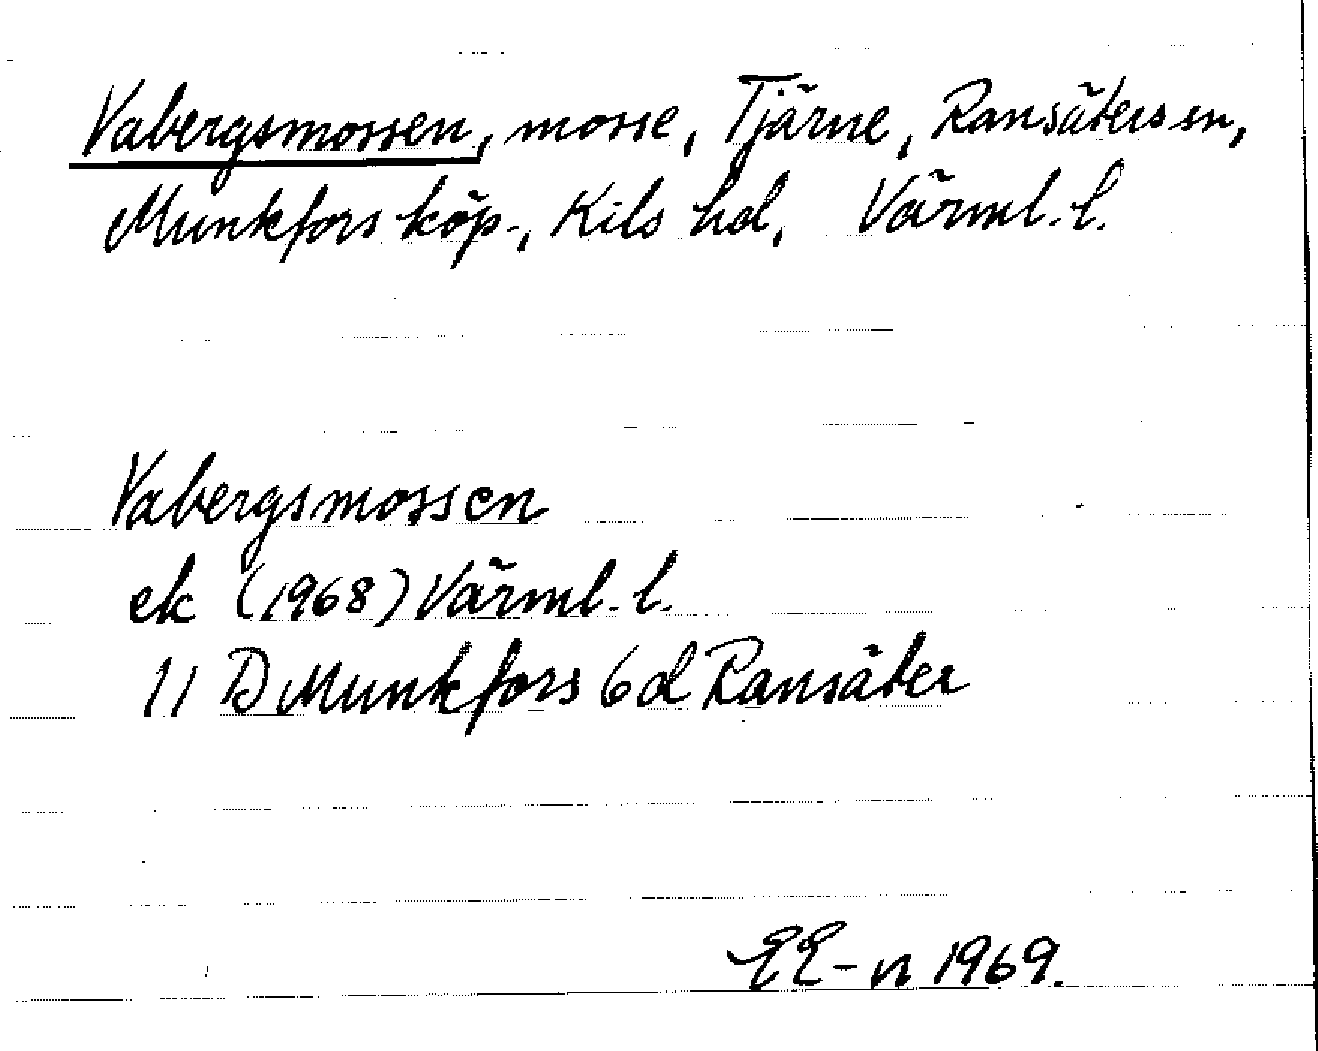 Vabergsmossen, mosse, Tjärne, Ransäters sn,
Munkfors köp., Kils hd, Värml. l.
Vabergsmossen
ek (1968) Värml. l.
11 D Munkfors 6 d Ransäter
EE-n 1969.